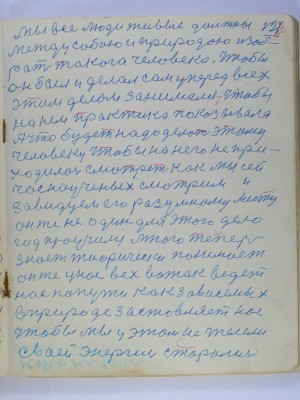 мы все люди живые должны
между собою и природою изоб
рат такога человека. Чтобы
он был и делал сам уперед всех
этим делом занимался, Чтобы
на нем практика показывала
А что будет надо делат этому
человеку Чтобы на него не при-
ходилос смотрет как мы сей
час на ученых смотрим и
завидуем его разумному месту
он же не один для этого дело
год проучили много теперь
знает теорически понимает
он же у нас всех вожак ведет
нас по пути как зависемых
в природе заставляет нас
Чтобы мы у этом не жалели
Своей Энергии старания